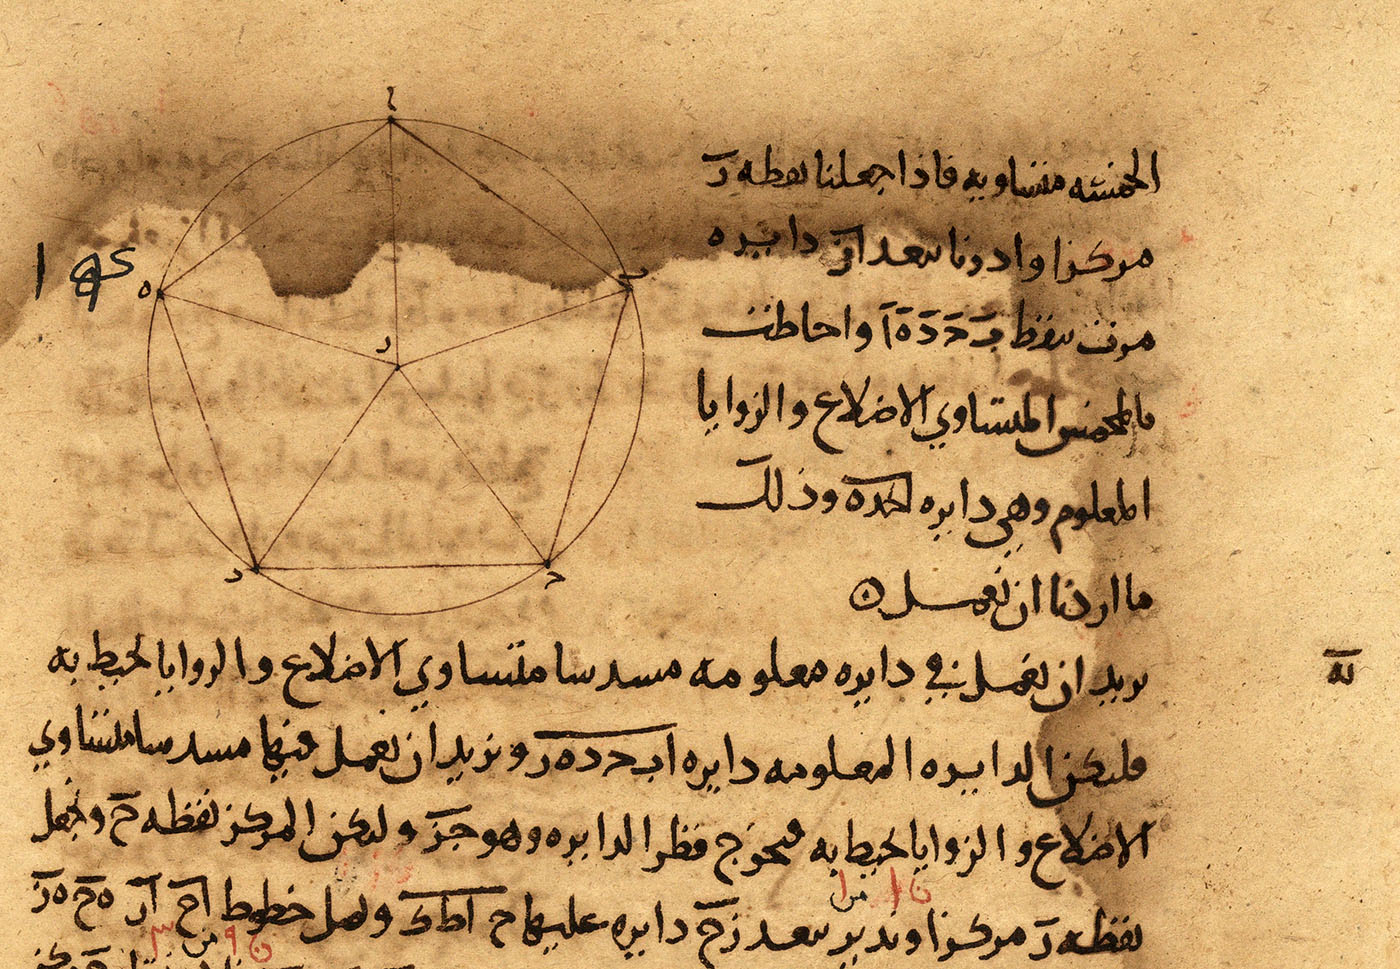 الخمسة متساويه فاذا جعلنا نقطه ر
مركزا وادرنا ببعد ار دايره
مرت بنقط ب ح د ه ا واحاطت
بالمخمس المتساوي الاضلاع والزوايا
المعلوم وهي دايره وذلك
ما اردنا ان نعمل ه
نريد ان نعمل في دايره معلومه مسدسا متساوي الاضلاع والزوايا تحيط به
فلتكن الدايره المعلومه دايره اب ح د ه ر ونريد ان نعمل فيها مسدسا متساوي
الاضلاع والزوايا تحيط به فنخرج قطر الدايره وهو ولتكن المركز نقطه ح ونجعل
نقطه ر مركزا وندير ببعد رح دايره عليها ح ا ط ك ونصل خطوط اح ار ه ح ه ر
ا
ب
ح
د
ه
ر
يه